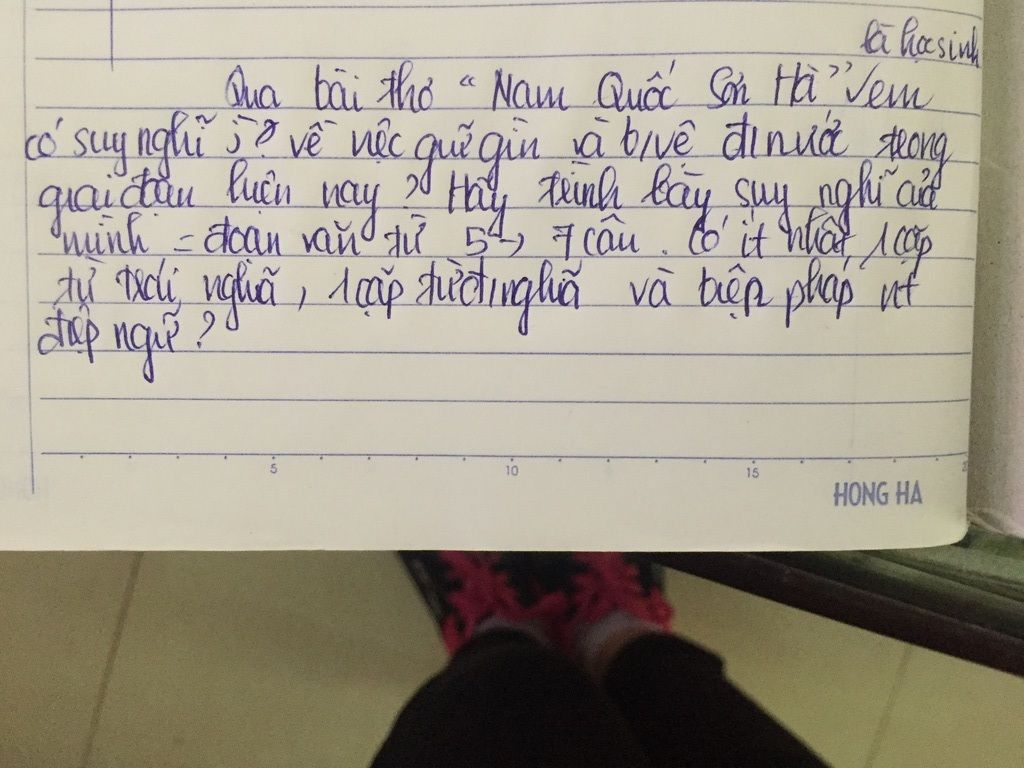 là học sinh
Qua bài thơ “Nam Quốc Sơn Hà” √ em
có suy nghĩ j? về việc giữ gìn và b/vệ đ/nước trong
giai đoạn hiện nay? Hãy trình bày suy nghĩ của
mình = đoạn văn từ 5 → 7 câu. Có ít nhất 1 cặp
từ trái nghĩa, 1 cặp từ đ/nghĩa và biện pháp nt
điệp ngữ?
5 10 15
HONG HA